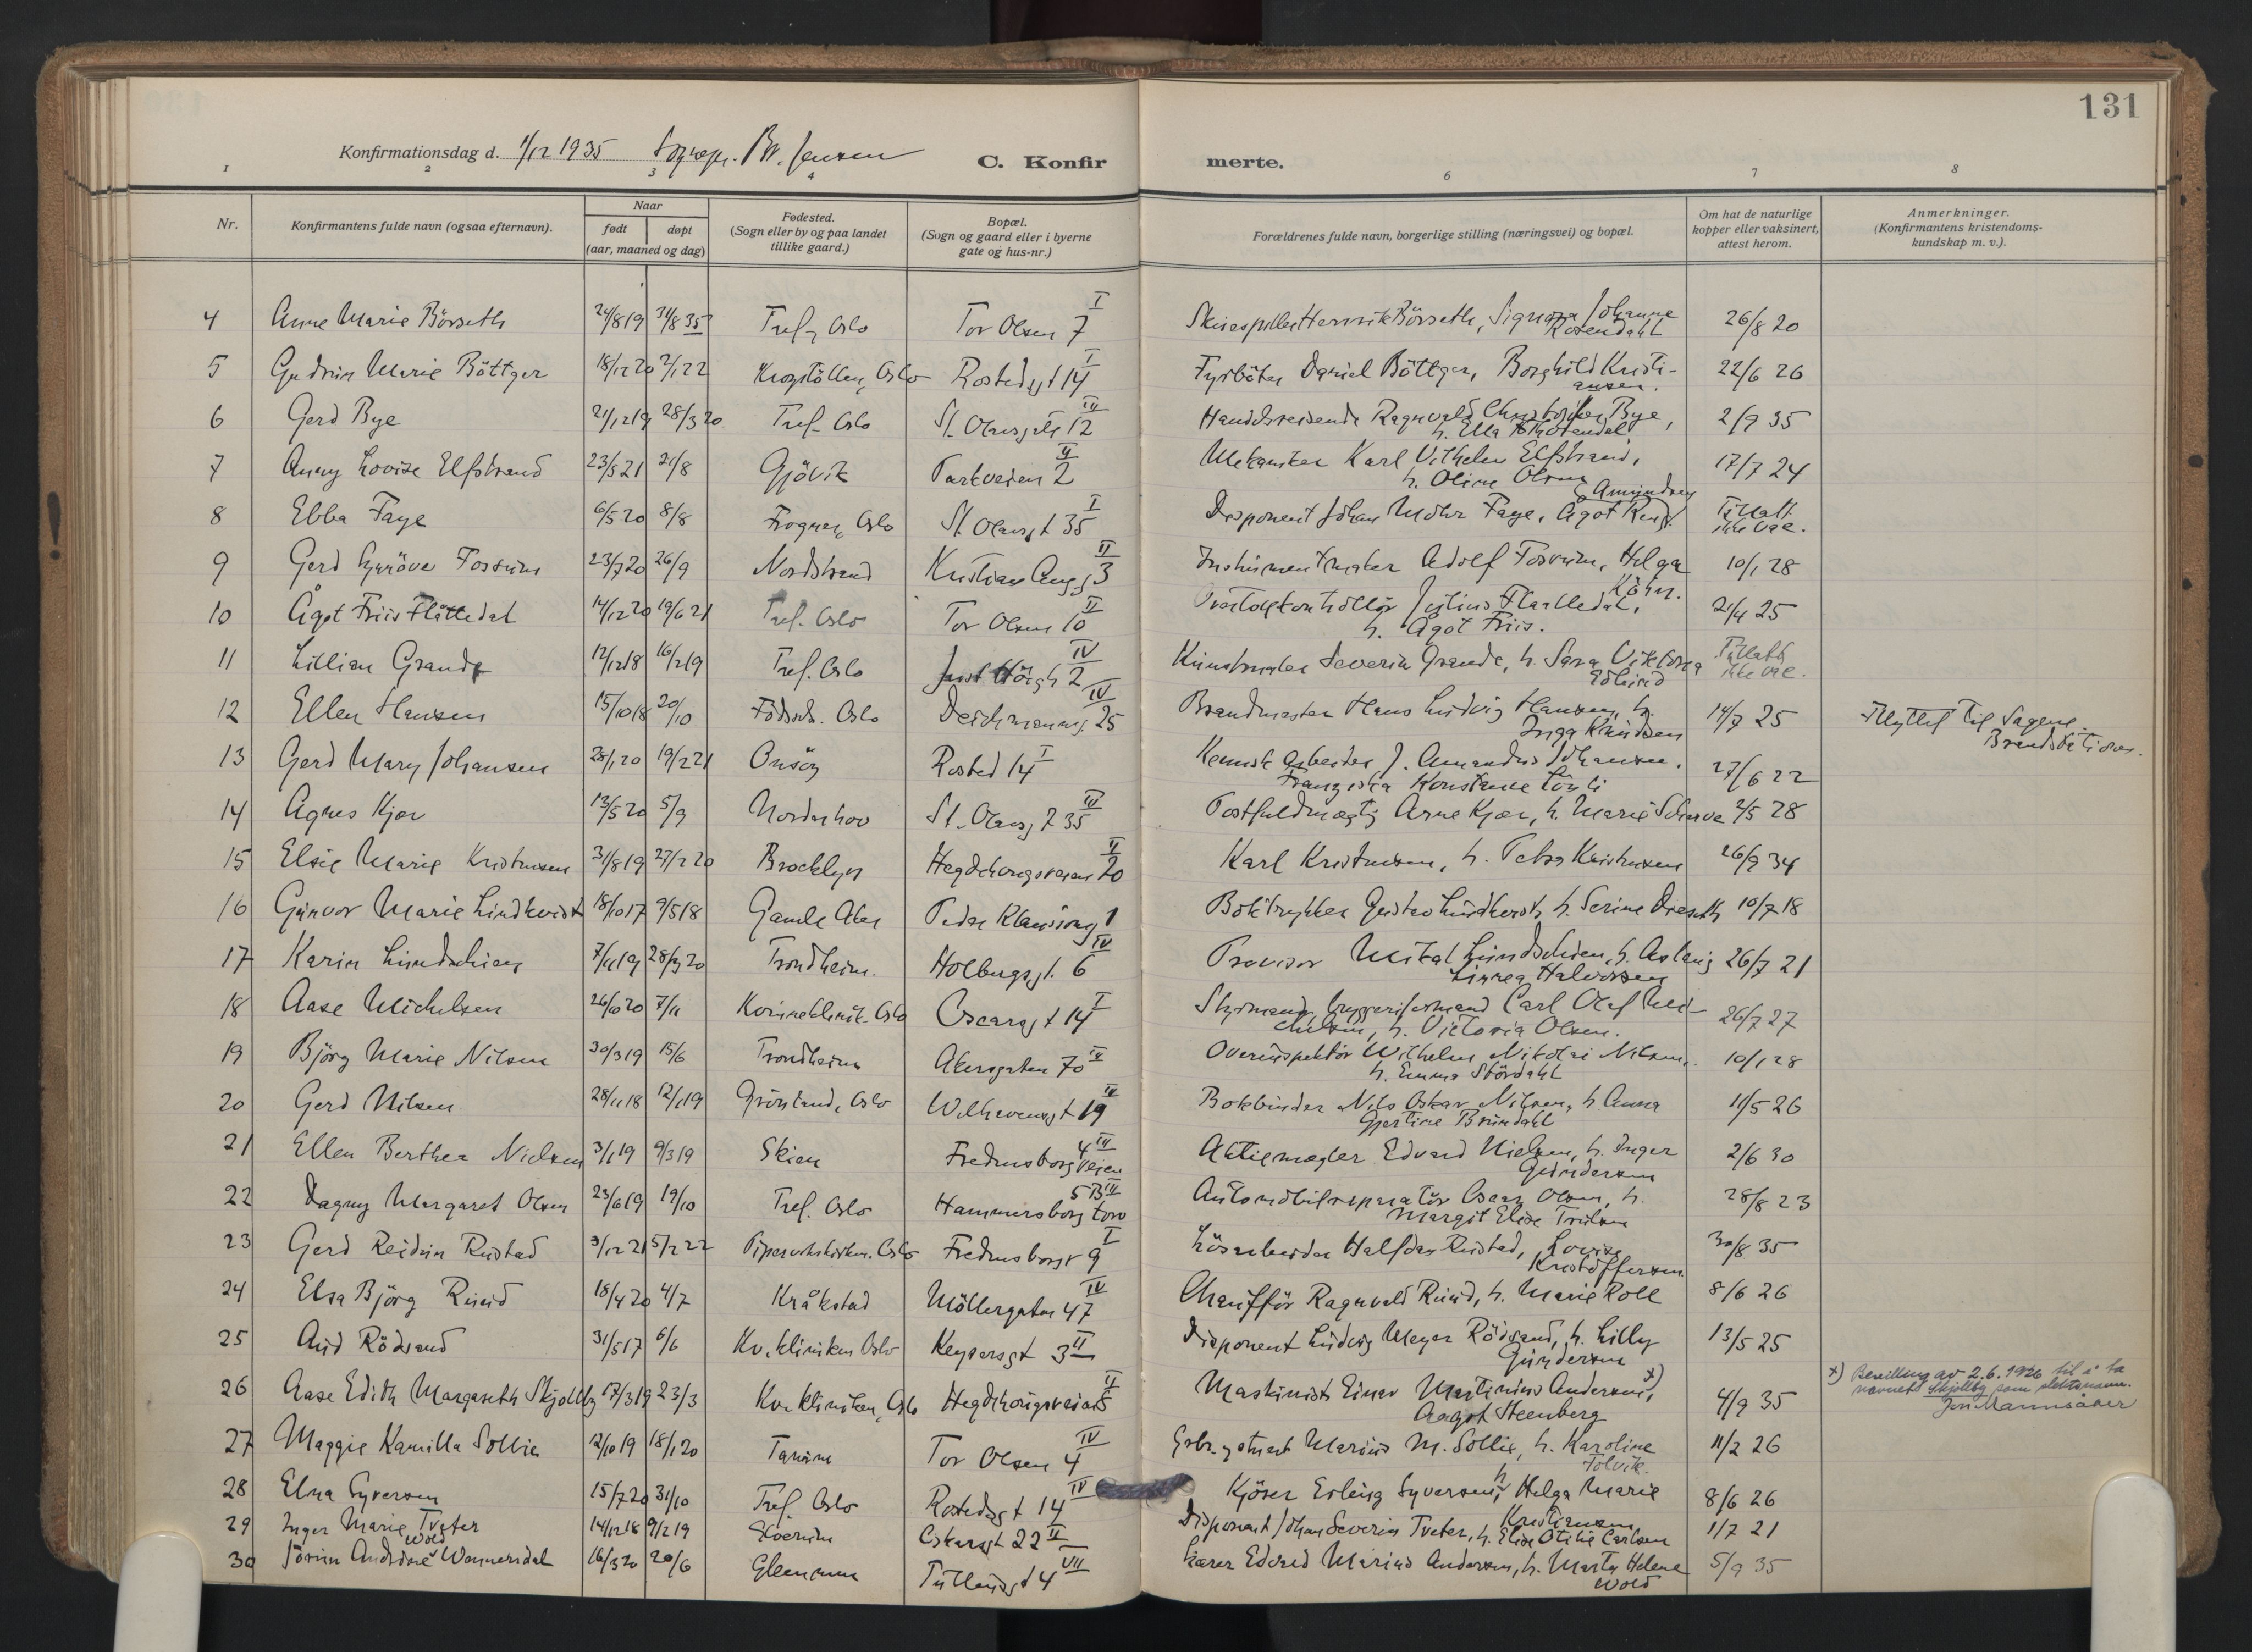 131
Konfirmationsdag d. 1/12 1935 Sogrepr. Br. Jensen C. Konfir merte.
1 2 3 4 6 7 8
Nr. Konfirmantens fulde navn (ogsaa efternavn). Naar født døpt (aar, maaned og dag) Fødested. (Sogn eller by og paa landet tillike gaard.) Bopæl. (Sogn og gaard eller i byerne gate og hus-nr.) Forældrenes fulde navn, borgerlige stilling (næringsvei) og bopæl. Om hat de naturlige kopper eller vaksinert, attest herom. Anmerkninger. (Konfirmantens kristendoms-kundskap m. v.).
4 Anne Marie Börseth 24/8 19 31/8 35 Tref., Oslo Tor Olsen 7 I Henrik Börseth, Signora Johanne Rosendahl 26/8 20
5 Gudrun Marie Böttger 18/12 20 2/1 22 Krogstöllen, Oslo Rostedsgt 14 I Fyrböter Daniel Böttger, Borghild Kristiansen. 22/6 26
6 Gerd Bye 21/12 19 28/3 20 Tref. Oslo St. Olavsgate 12 III Handelsreisende Ragnvald Christoffer Bye, h. Ella 2/9 35
7 Anny Lovise Elfstrand 23/5 21 21/8 Gjövik Parkveien 2 II Mekaniker Karl Vilhelm Elfstrand, h. Oline Olsen 17/7 24
8 Ebba Faye 6/5 20 8/8 Frogner, Oslo St. Olavsgt 35 I Disponent Johan Mohr Faye, Agot Amundsen Tillatt ikke vac.
9 Gerd Gunövar Fossum 23/7 20 26/9 Nordstrand Kristian Augsg 3 II Instrumentmaker Adolf Fossum, Helga Köhn. 10/1 28
10 Ågot Friis Flåttedal 14/12 20 19/6 21 Tref. Oslo Tor Olsen 10 II Overtollkontrollör Julius Flaattedal, h. Agot Friis. 21/4 25
11 Lillian Grande 12/12 18 16/2 19 Tref. Oslo Just Höegh 2 IV Kunstmaler Severin Grande, h. Sara Viktoria Edlund Tillatt ikke vac.
12 Ellen Hansen 15/10 18 20/10 Födsels. Oslo Deichmannsg. 25 IV Brandmester Hans Ludvig Hansen, h. Inga Knudsen 14/7 25 Flyttet til Sagene Brandstation.
13 Gerd Mary Johansen 28/1 20 19/2 21 Onsöy Rosted 14 I Kemisk arbeider J. Amandus Johansen, Franziska Konstanse Lönli 27/6 22
14 Agnes Kjær 13/5 20 5/9 Norderhov St. Olavsg 35 III Postfuldmægtig Arne Kjær, h. Marie Scharve 2/5 28
15 Elsie Marie Kristensen 31/8 19 27/2 20 Brooklyn Hegdehaugsveien 20 II Karl Kristensen, h. Petra Kristensen 26/9 34
16 Gunvor Marie Lindkvist 18/10 17 9/5 18 Gamle Aker Peder Klausöng 1 Boktrykker Gustav Lindkvist, h. Serine Dreseth 10/7 18
17 Karin Lundschien 7/11 19 28/3 20 Trondheim. Holbergsgt. 6 IV Provisor Mikal Lundschien, h. Aslaug Linnea Halvorsen 26/7 21
18 Aase Michelsen 26/10 20 7/11 Kvinneklinik. Oslo Oscarsgt 14 I Styrmand, bryggeriformand Carl Olaf Michelsen, h. Victoria Olsen. 26/7 27
19 Björg Marie Nilsen 30/3 19 15/6 Trondheim Akersgaten 70 IV Overinspektör Wilhelm Nikolai Nilsen, h. Emma Stördahl 10/1 28
20 Gerd Nilsen 28/11 18 12/1 19 Grönland, Oslo Welhavensgt 19 IV Bokbinder Nils Oskar Nilsen, h. Anna Gjertine Brundahl 11/5 26
21 Ellen Berthea Nielsen 3/1 19 9/3 19 Skien Fredensborgveien 4 III Aktiemægler Edvard Nielsen, h. Inger Gundersen 2/6 30
22 Dagny Margaret Olsen 23/6 19 19/10 Tref. Oslo Hammersborg torv 5 B IV Automobilreparatör Oscar Olsen, h. Margit Elise Trulsen 28/8 23
23 Gerd Reidun Rustad 3/12 21 5/2 22 Pipervikskirken. Oslo Fredensborgv 9 I Lösarbeider Halfdan Rustad, Lovise Kristoffersen. 30/8 35
24 Elsa Björg Ruud 18/4 20 4/7 Kråkstad Möllergaten 47 IV Chaufför Ragnvald Ruud, h. Marie Roll 8/6 26
25 Aud Rödsand 31/5 17 6/6 Kv.kliniken Oslo Keysersgt 3 II Disponent Ludvig Meyer Rödsand, h. Lilly Gundersen 13/5 25
26 Aase Edith Margareth Skjolly 17/3 19 23/3 Kv.kliniken, Oslo Hegdehaugsveien 5 II Maskinist Einar Martinius Andersen x), Aagot Steenberg 4/9 35 x) Bevilling av 2.6.1926 til å ta navnet Skjolly som slektsnavn. Jon Mannsåker
27 Maggie Kamilla Sollie 12/10 19 18/1 20 Tanum Tor Olsen 4 IV Marius M. Sollie, h. Karoline Tolvik. 11/2 26
28 Elna Syversen 15/7 20 31/10 Tref. Oslo Rostedsgt 14 IV Kjörer Erling Syversen, h Helga Marie Kristiansen 8/6 26
29 Inger Marie Tveter 14/12 18 9/2 19 Skoerum Oskarsgt 22 II Disponent Johan Severin Tveter, h. Elise Otilie Carlsen 1/7 21
30 Jorun Andrine Wold Wennersdal 16/3 20 20/6 Glemmen Tullinsgt 4 VII Lærer Edvard Marius Andersen, h. Marta Helene Wold 5/9 35